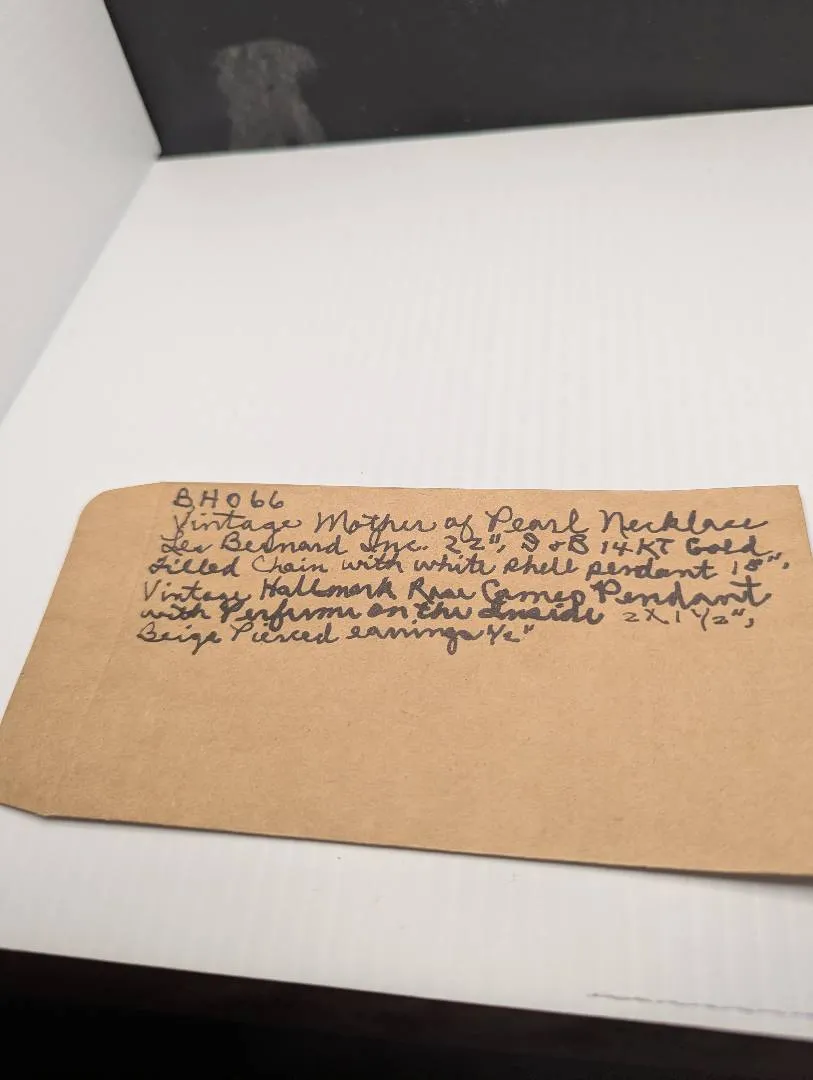 BH066
Vintage Mother of Pearl Necklace
Les Bernard Inc. 22", D & B 14 KT Gold
Filled Chain with white shell pendant 18",
Vintage Hallmark Rose Cameo Pendant
with Perfume on the Inside 2X1 1/2",
Beige Pierced earrings 1/2"